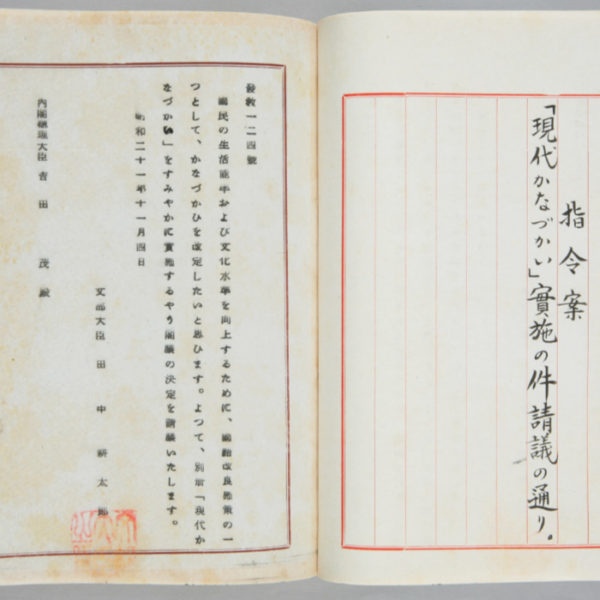 指令案
「現代かなづかい」實施の件請議の通り。
發教一二四號
國民の生活能率および文化水準を向上するために、國語改良施策の一
つとして、かなづかひを改定したいと思ひます。よつて、別冊「現代か
なづかい」をすみやかに實施するやう閣議の決定を請議いたします。
昭和二十一年十一月四日
文部大臣 田中耕太郎
内閣總理大臣 吉田 茂殿